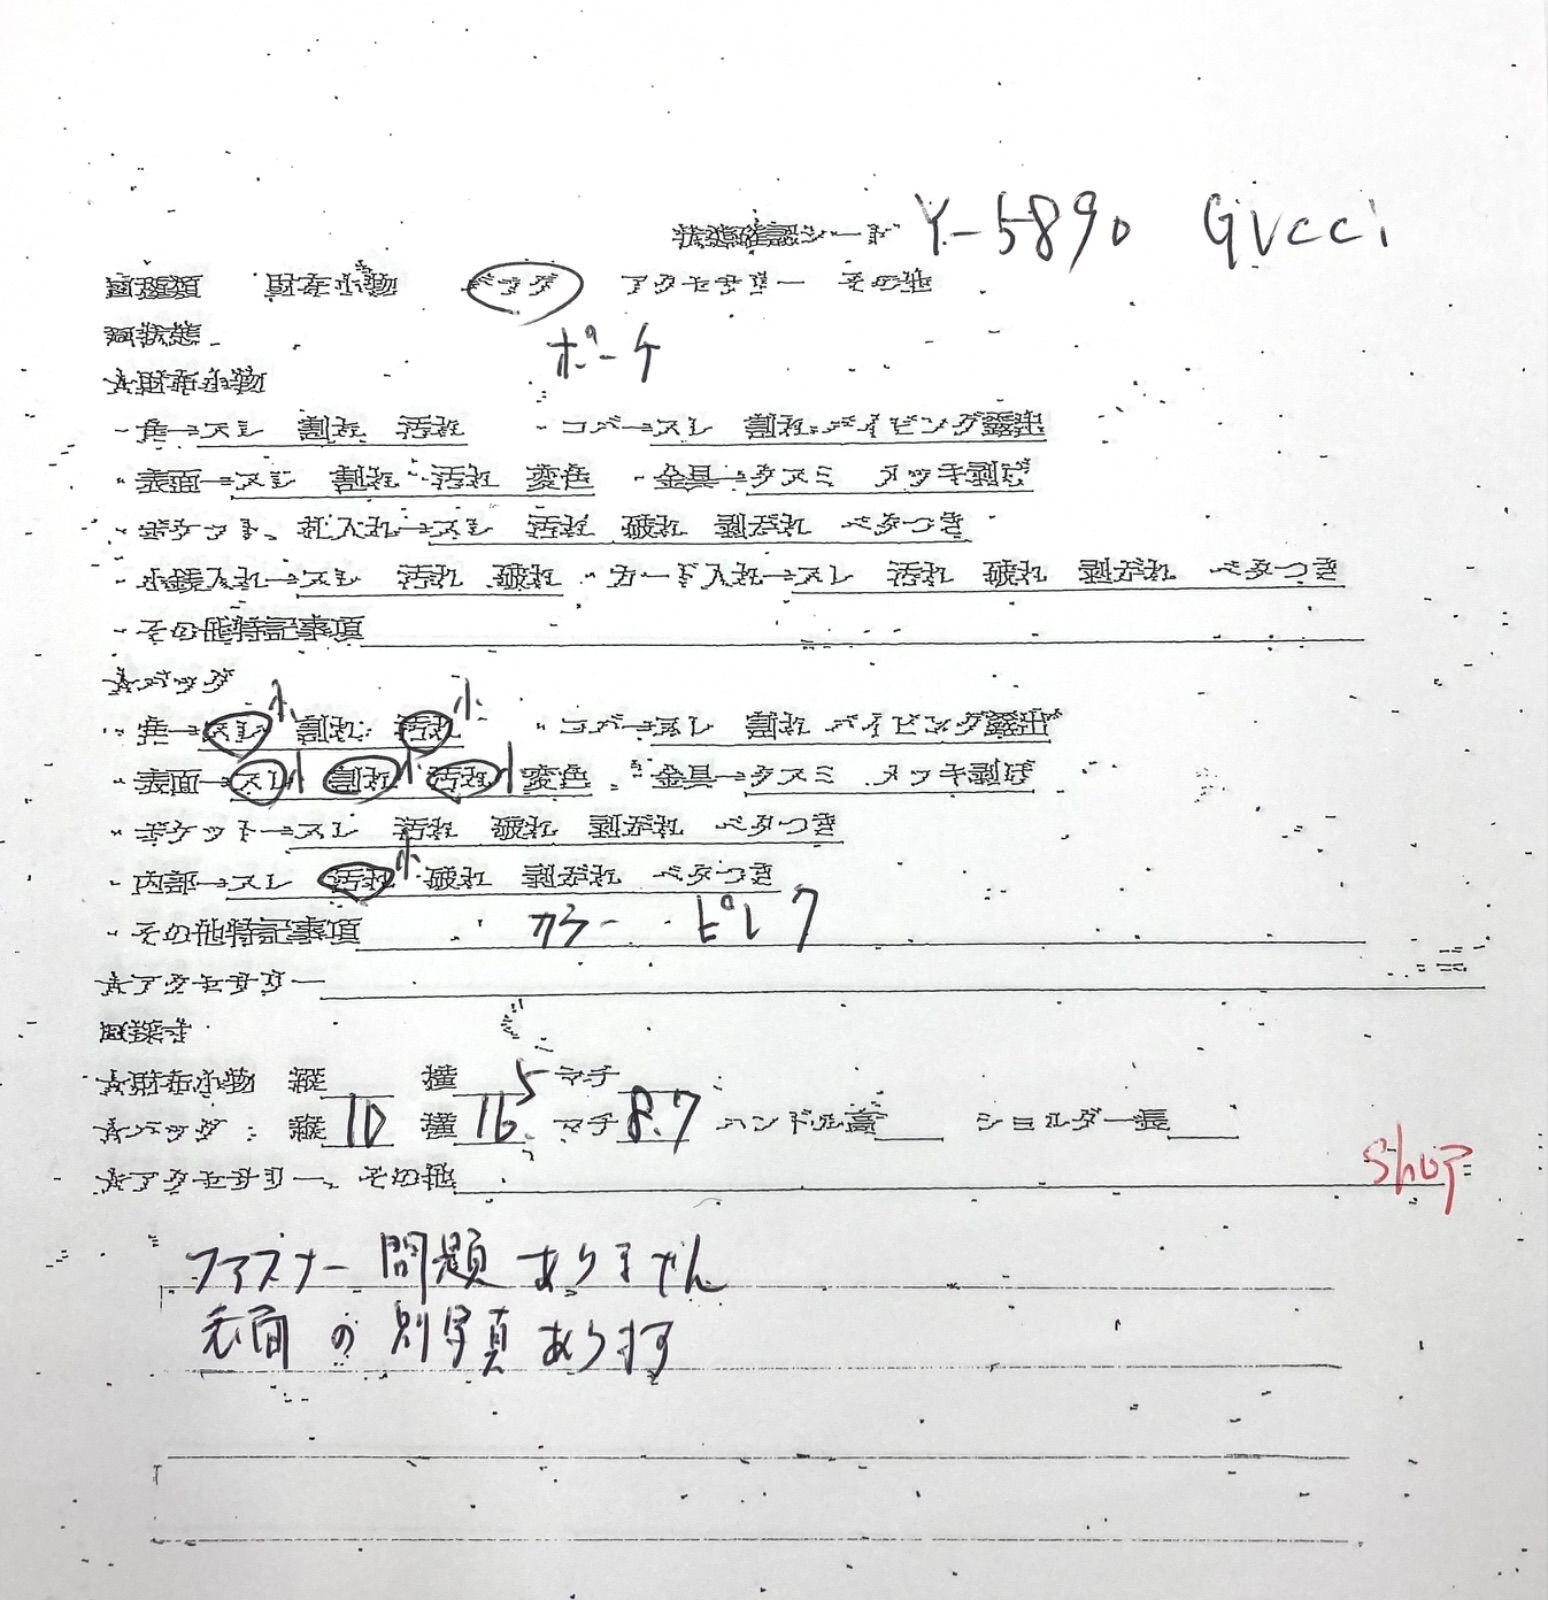 状態確認シート Y-5890 GUCCI
□種類 財布小物 バッグ アクセサリー その他
□状態 ポーチ
☆財布小物
・角→スレ 割れ 汚れ ・コバ→スレ 割れ パイピング露出
・表面→スレ 割れ 汚れ 変色 ・金具→クスミ メッキ剥げ
・ポケット、札入れ→スレ 汚れ 破れ 剥がれ ベタつき
・小銭入れ→スレ 汚れ 破れ ・カード入れ→スレ 汚れ 破れ 剥がれ ベタつき
・その他特記事項
☆バッグ
・角→スレ小 割れ 汚れ小 ・コバ→スレ 割れ パイピング露出
・表面→スレ小 割れ小 汚れ小 変色 ・金具→クスミ メッキ剥げ
・ポケット→スレ 汚れ 破れ 剥がれ ベタつき
・内部→スレ 汚れ小 破れ 剥がれ ベタつき
・その他特記事項 カラー ピンク
☆アクセサリー
□採寸
☆財布小物 縦 横 マチ
☆バッグ 縦10 横16.5 マチ8.7 ハンドル高 ショルダー長
☆アクセサリー、その他
SHOP
ファスナー問題ありません
表面の別写真あります